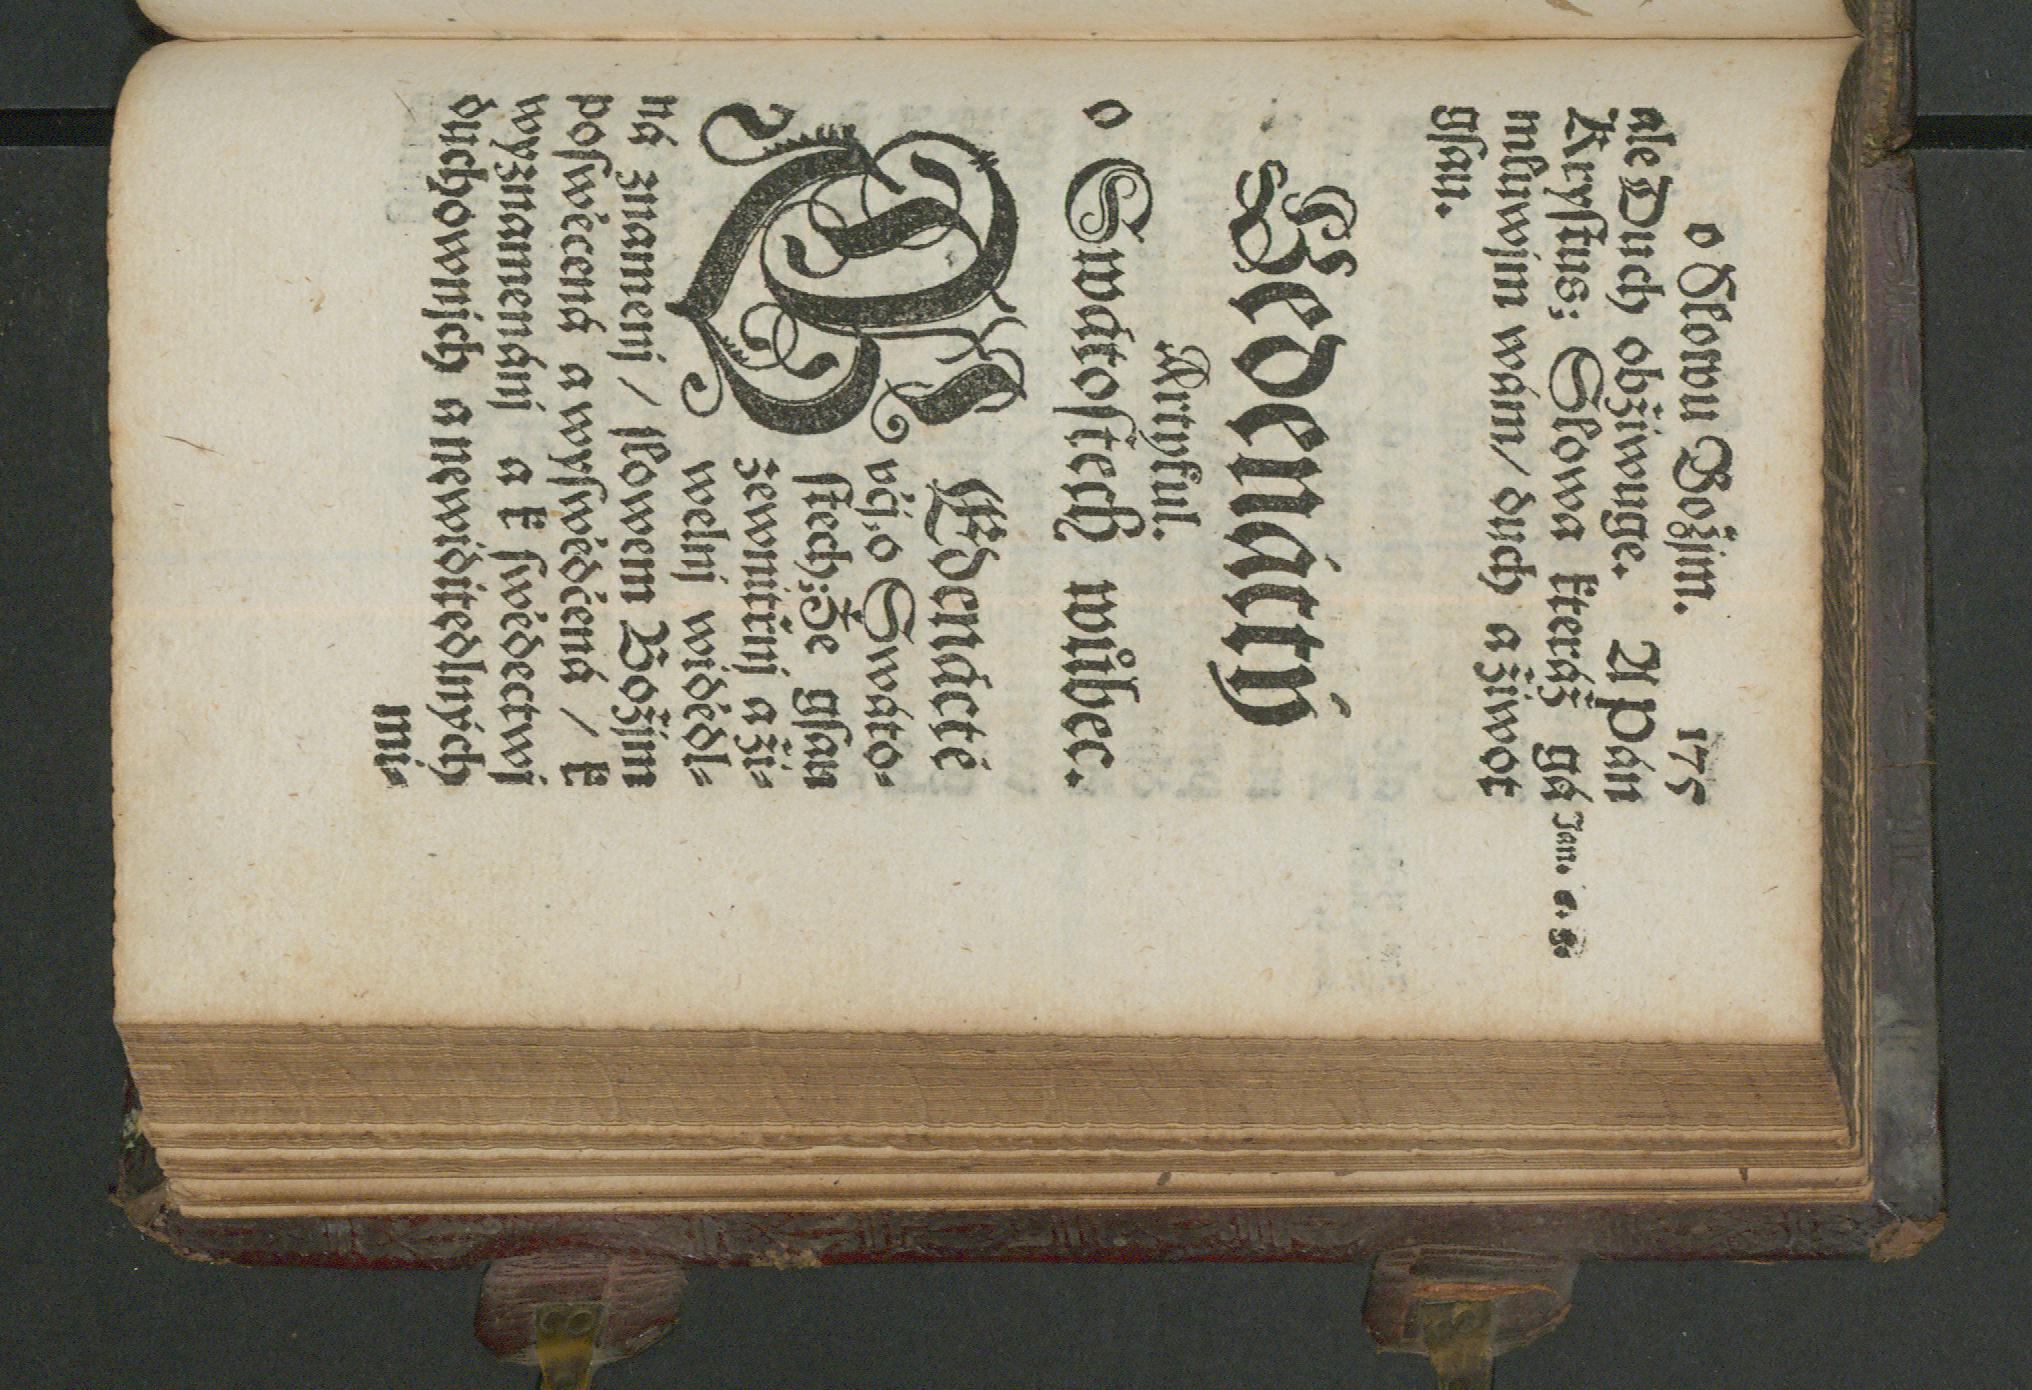 o Slowu Božjm. 175
ale Duch obžiwuge. A Pán
Krystus: Slowa kteráž gá Jan. 6. g.
mluwjm wám / duch a žiwot
gsau.
Gedenáctý
Artykul.
o Swátostech wůbec.
Gedenácté
učj, o Swáto-
stech: Že gsau
zewnitřnj a zři-
welnj widědl-
ná znamenj / slowem Božjm
poswěcená a wyswědčená / k
wyznamenánj a k swědectwj
duchownjch a newiditedlných
mi-